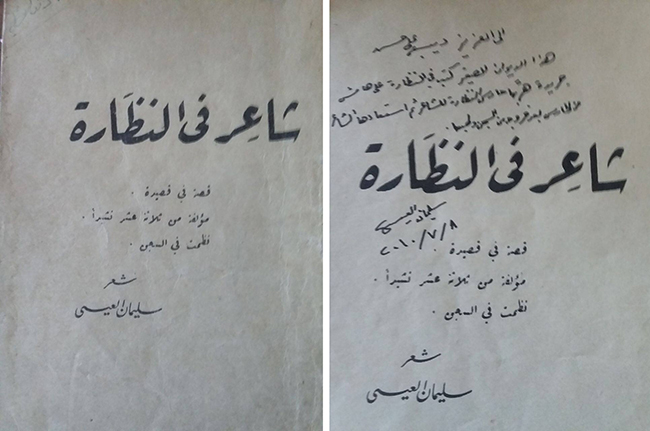 شاعر في النظَارة
قصة في قصيدة .
مؤلفة من ثلاثة عشر نشيداً .
نظمت في السجن .
شعر
سليمان العيسى
الى العزيز ديب علي حسن
هذا الديوان الصغير كتب في النظارة على هامش
جريدة
شاعِر في النظَارة
سليمان العيسى
٢٠١٠/٧/٨
قصة في قصيدة .
مؤلفة من ثلاثة عشر نشيداً .
نظمت في السجن .
شعر
سليمان العيسى